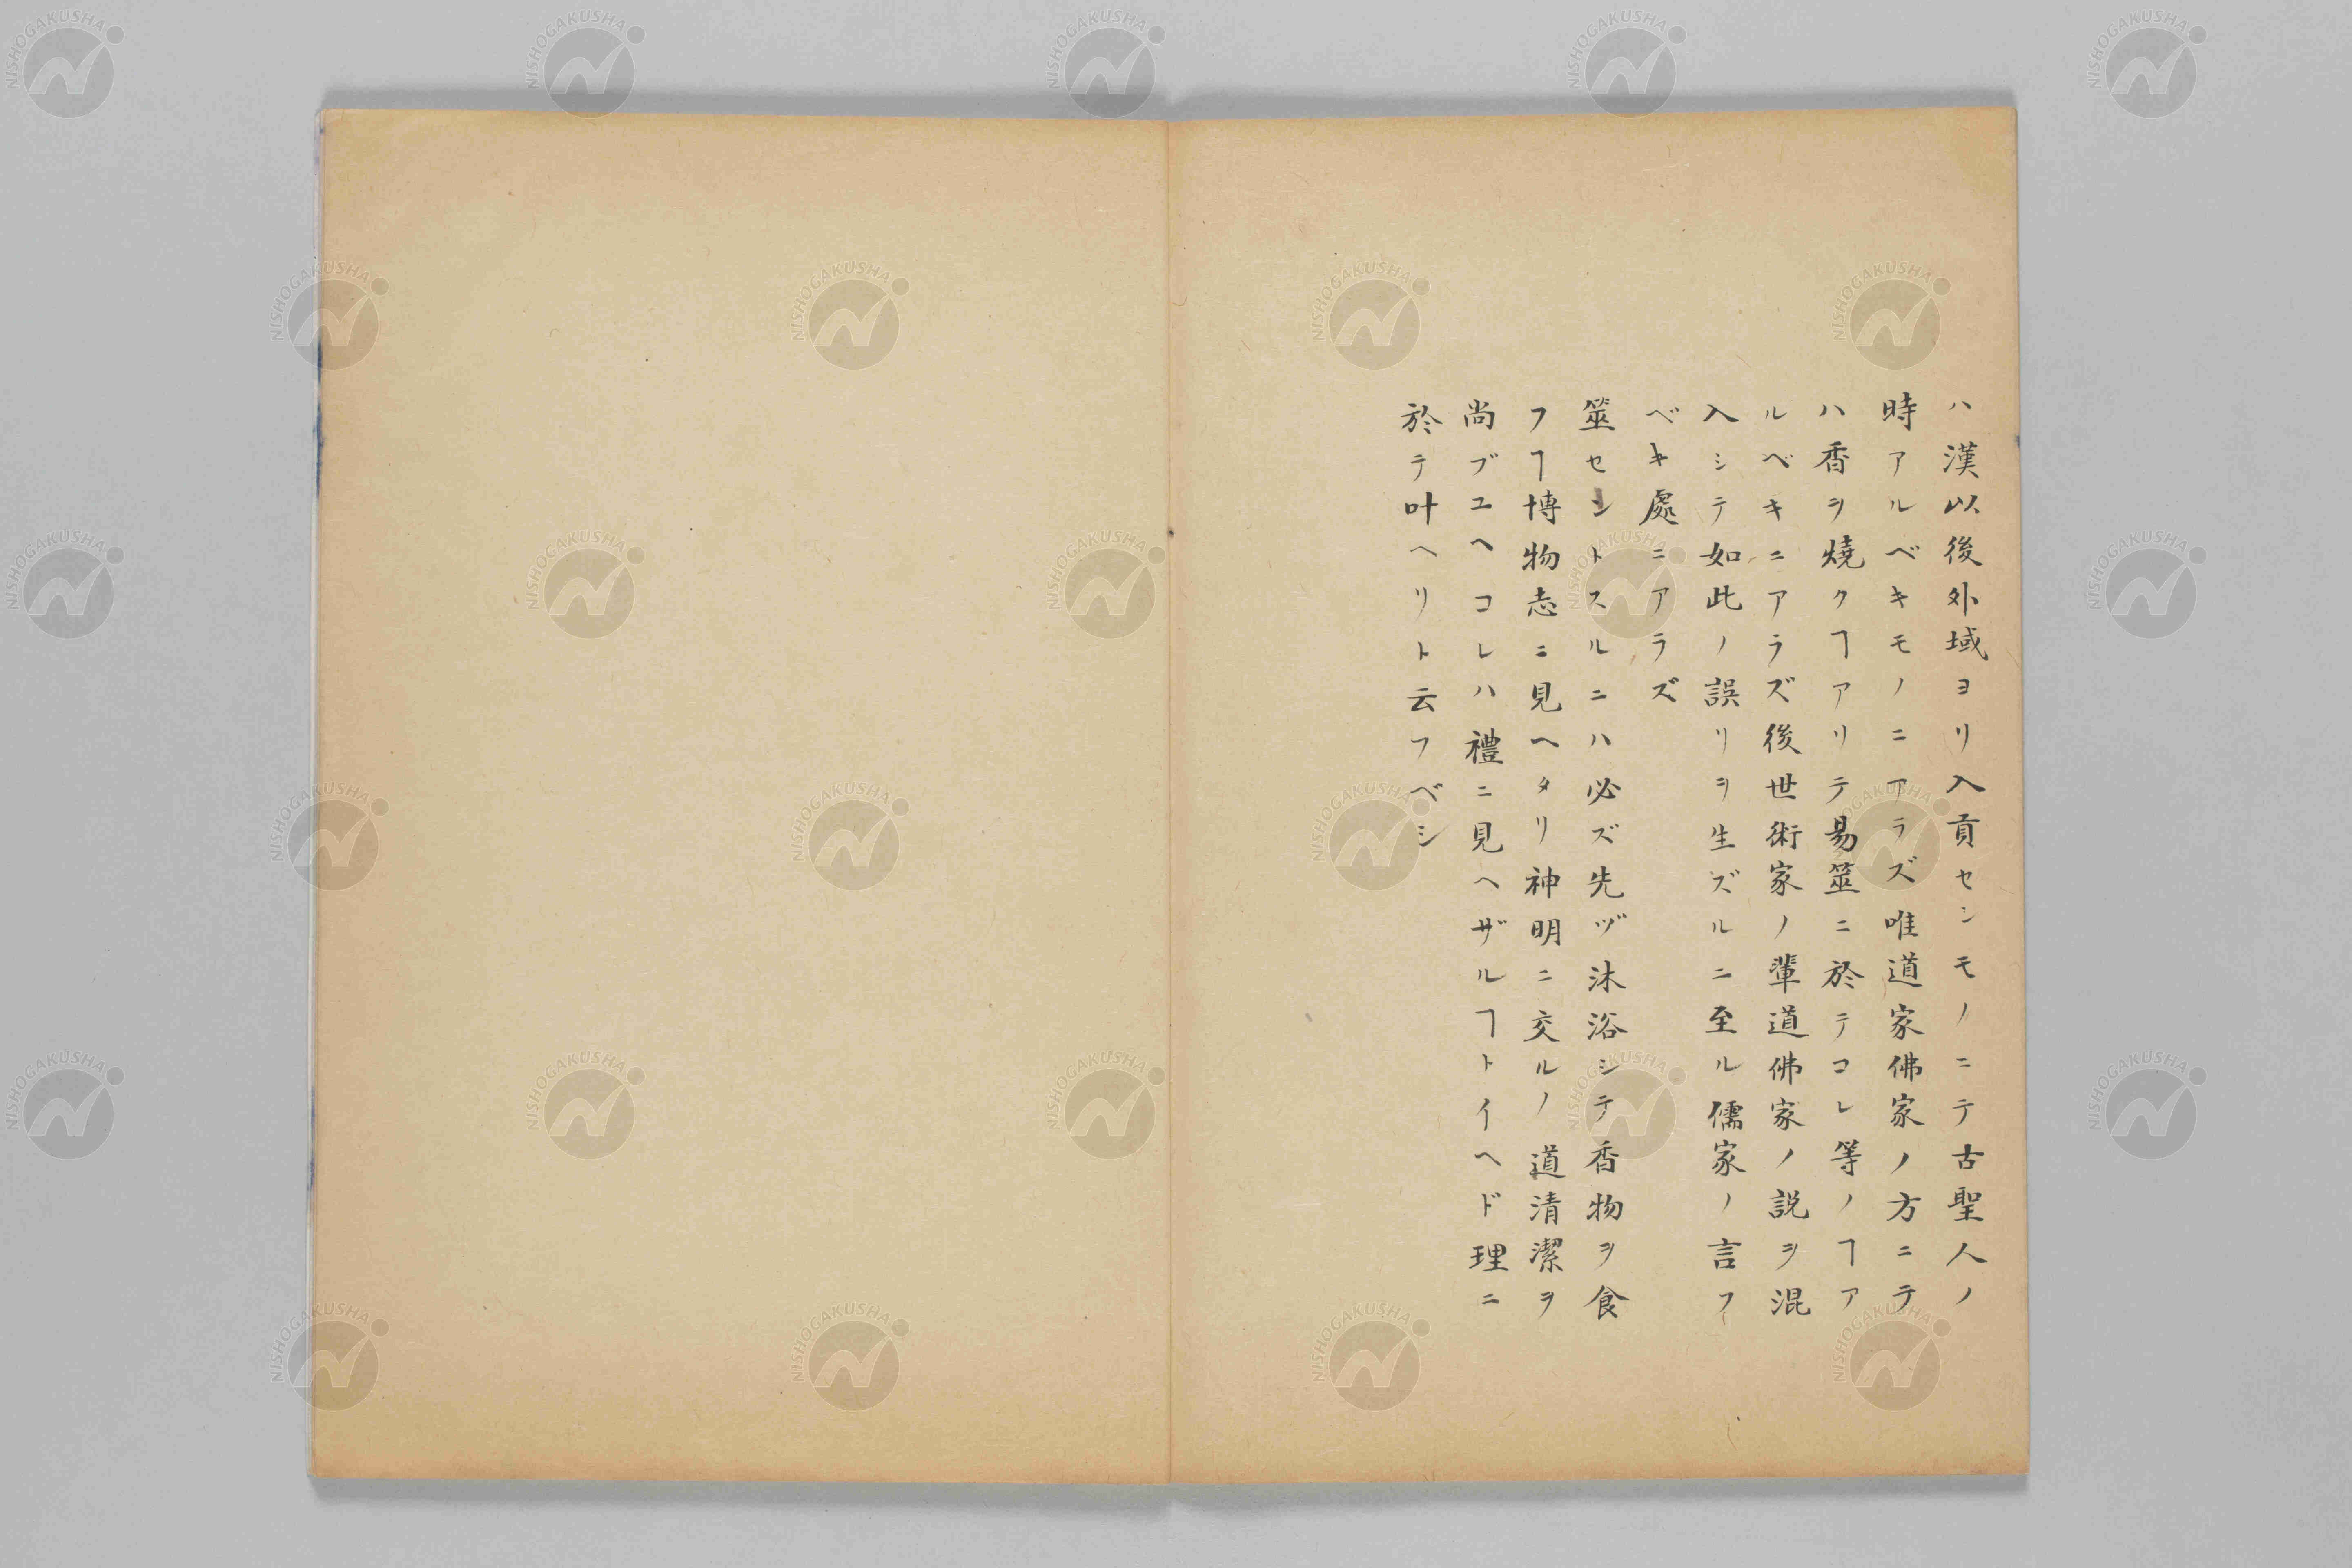 ハ漢以後外域ヨリ入貢センモノニテ古聖人ノ
時アルベキモノニアラズ唯道家佛家ノ方ニテ
ハ香ヲ燒クヿアリテ易筮ニ於テコレ等ノヿア
ルベキニアラズ後世術家ノ輩道佛家ノ説ヲ混
入シテ如此ノ誤リヲ生ズルニ至ル儒家ノ言フ
ベキ處ニアラズ
筮セントスルニハ必ズ先ヅ沐浴シテ香物ヲ食
フヿ博物志ニ見ヘタリ神明ニ交ルノ道清潔ヲ
尚ブユヘコレハ禮ニ見ヘザルヿトイヘド理ニ
於テ叶ヘリト云フベシ
NISHOGAKUSHA